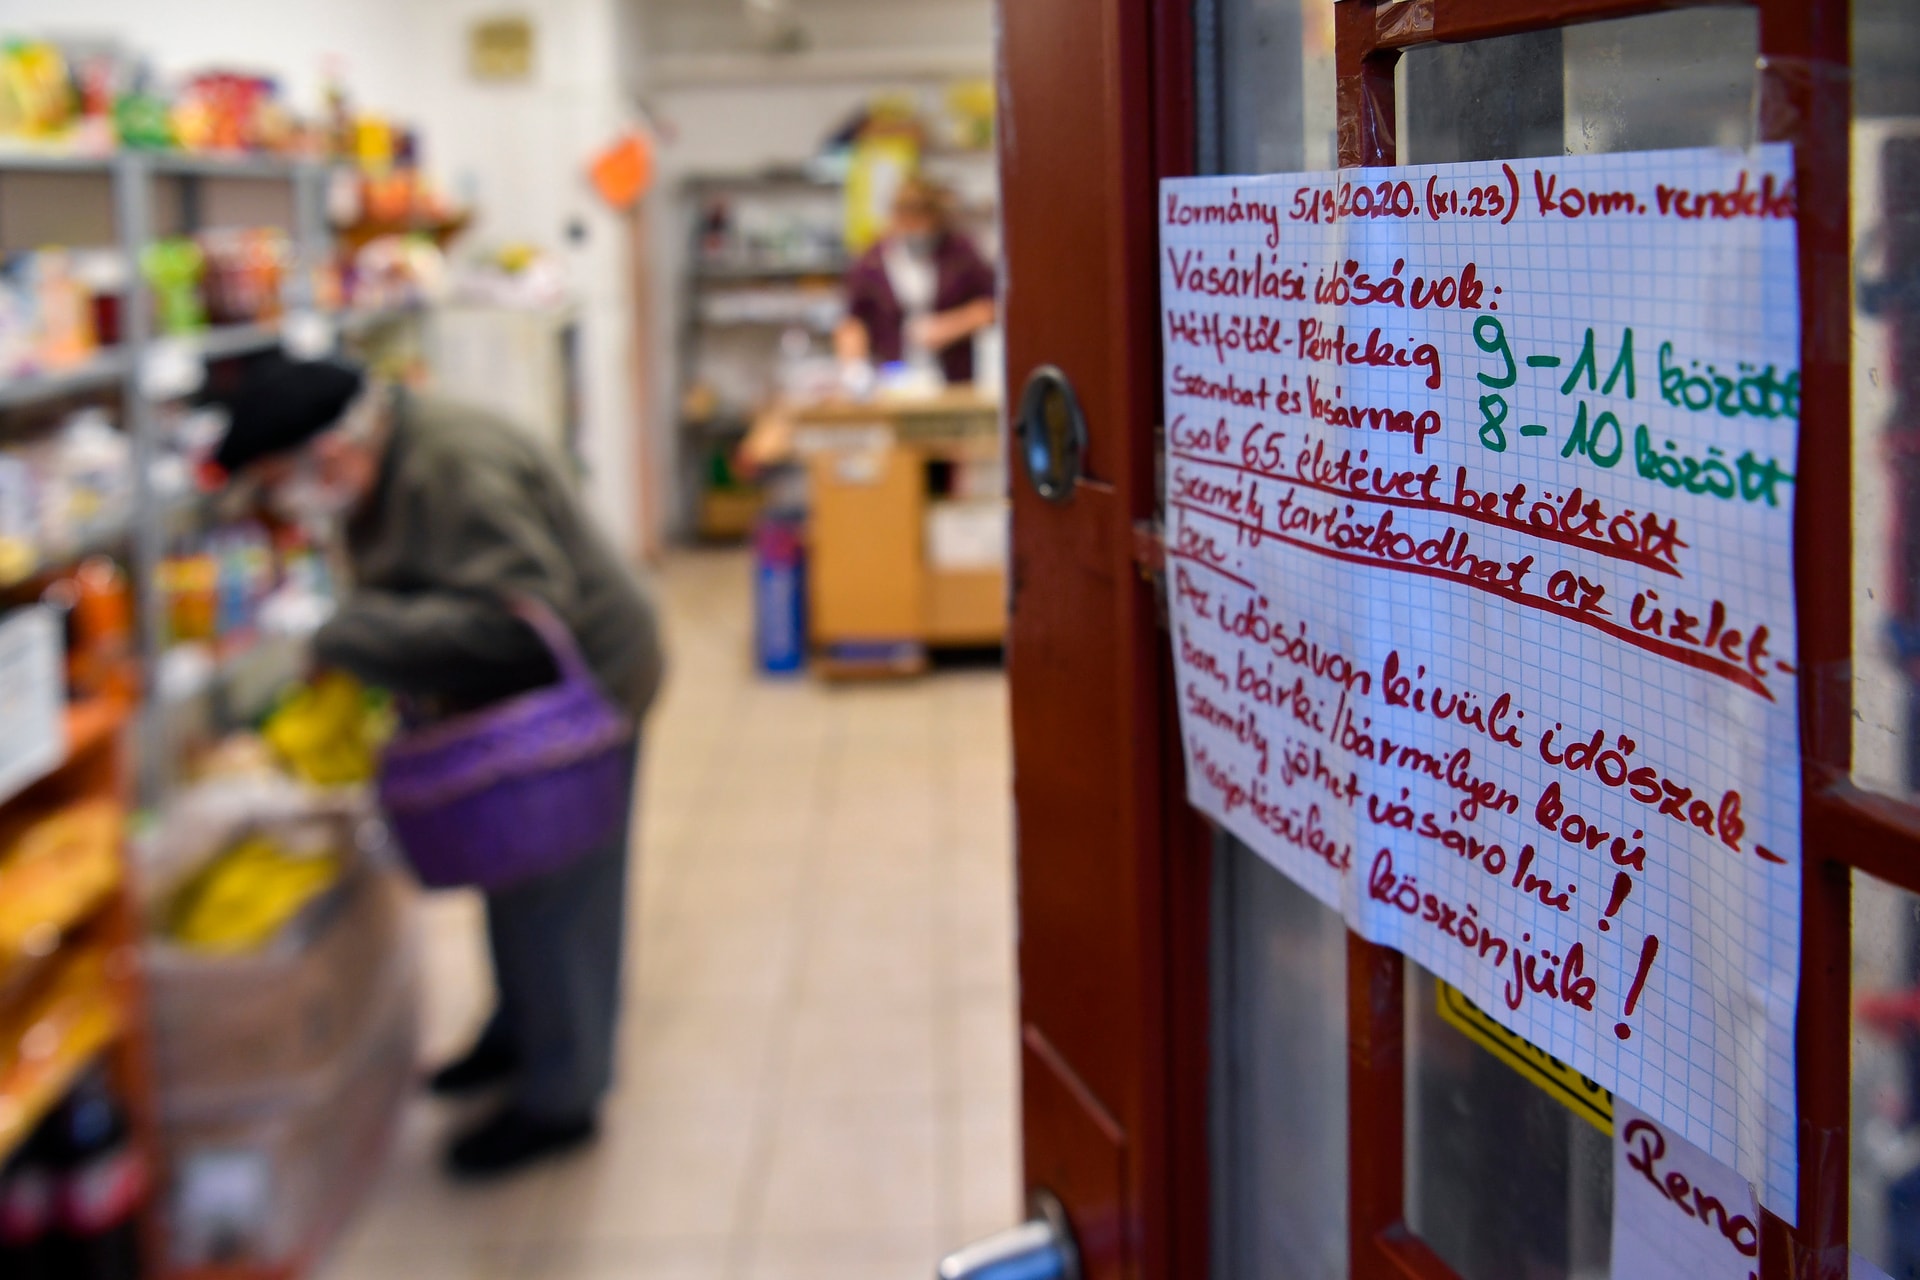 Kormány 513/2020. (XI.23) Korm. rendelet
Vásárlási idősávok:
Hétfőtől-Péntekig 9-11 között
Szombat és Vasárnap 8-10 között
Csak 65. életévet betöltött
személy tartózkodhat az üzlet-
ben!
Az idősávon kívüli időszak-
ban, bárki/bármilyen korú
személy jöhet vásárolni!
Megértésüket köszönjük!